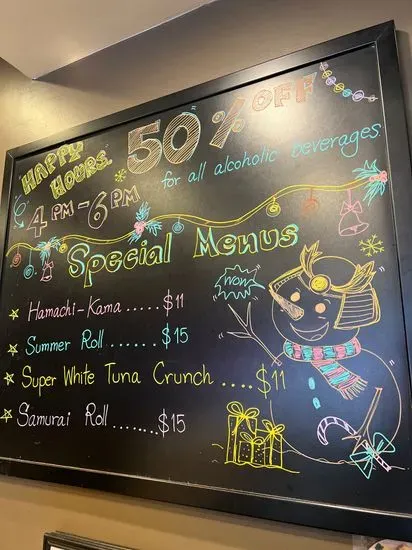 HAPPY HOURS.
50% OFF
4 PM - 6 PM
for all alcoholic beverages
Special Menus
Hamachi-Kama ...... $11
Summer Roll ...... $15
Super White Tuna Crunch .... $11
Samurai Roll ........ $15
WOW!